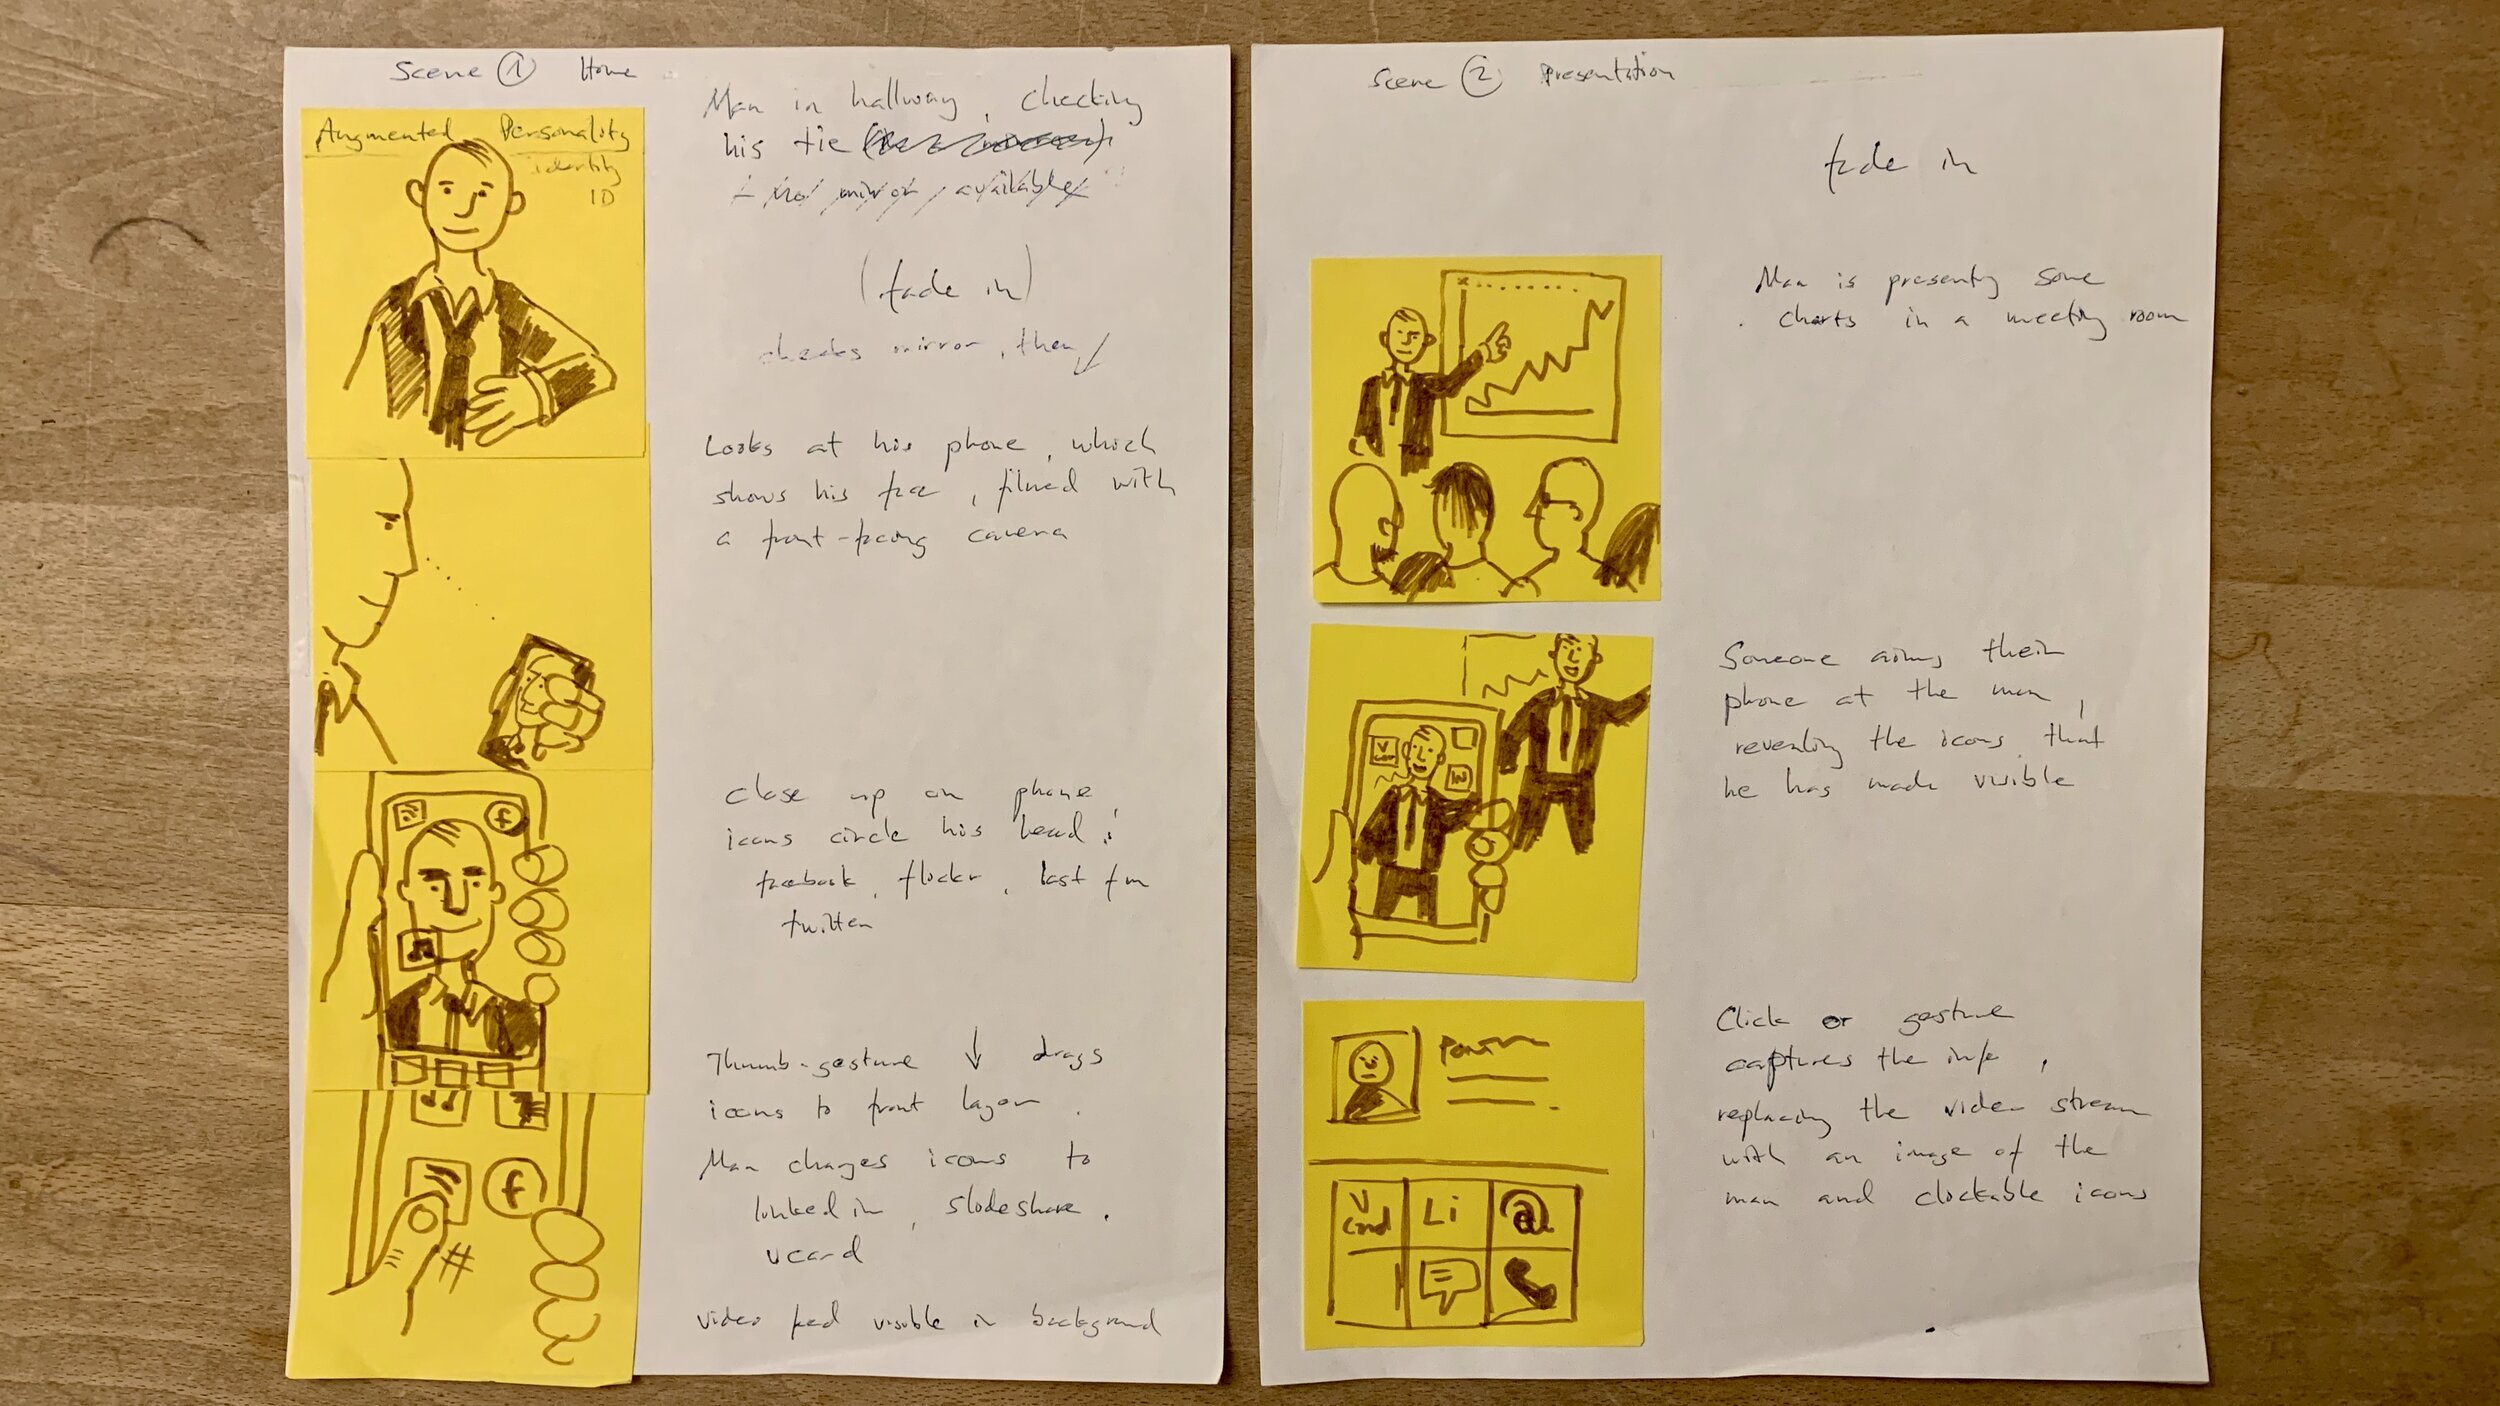 Scene 1 Home
Augmented Personality
identity
ID
Man in hallway, checking
his tie
- No mirror available
(fade in)
checks mirror, then ↓
Looks at his phone, which
shows his face, filmed with
a front-facing camera
Close up on phone,
icons circle his head:
facebook, flickr, last fm
twitter
f
Thumb-gesture ↓ drags
icons to front layer.
Man changes icons to
linked in, slideshare,
vcard
f
video feed visible in background
Scene 2 Presentation
fade in
Man is presenting some
charts in a meeting room
Someone aims their
phone at the man,
revealing the icons that
he has made visible
V
Click or gesture
captures the info,
replacing the video stream
with an image of the
man and clickable icons
V card Li @